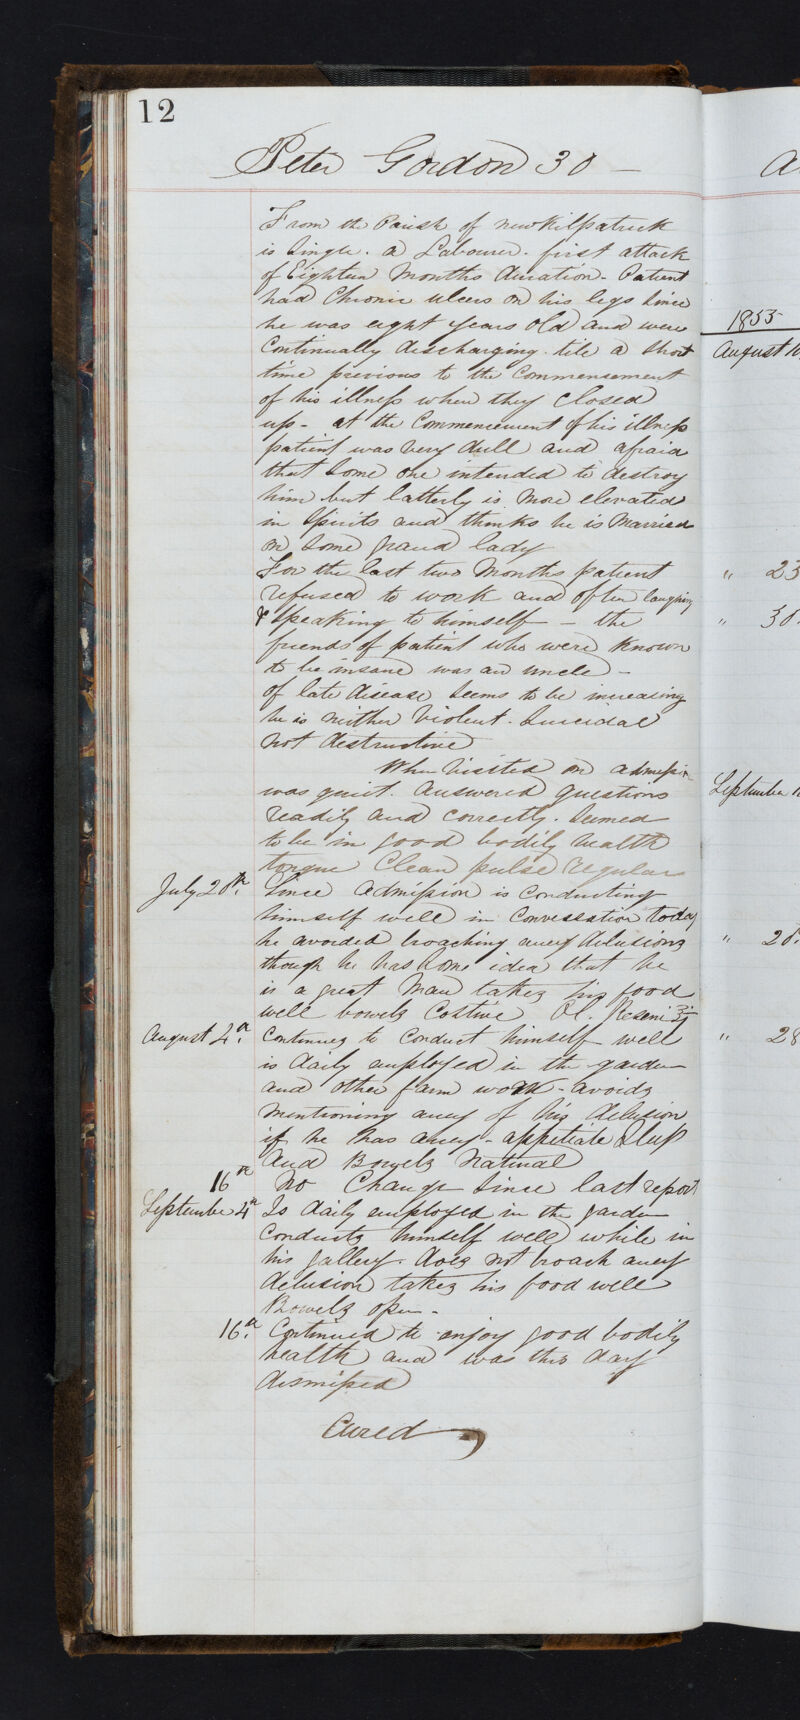 12
Peter Gordon 30 —
From the Parish of new Kilpatrick
is Single. a Labourer. first attack
of Eighteen Months duration - Patient
had Chronic ulcers on his legs Since
he was eight years old and were
Continually discharging. till a Short
time previous to the Commencement
of his illness when they Closed
up - at the Commencement of his illness
patient was very dull and afraid
that Some one intended to destroy
him but latterly is more elevated
in Spirits and thinks he is Married
on Some grand lady
For the last two Months patient
refused to work and often laughing
& Speaking to himself - the
friends of patient who were known
to be insane was an uncle -
of late disease Seems to be increasing
he is neither Violent. Suicidal
not destructive
When Visited on admission
was quiet. answered questions
readily and correctly. Seemed
to be in good bodily health
tongue Clean pulse regular
July 20th. Since admission is Conducting
himself well in Conversation today
he avoided broaching any delusions
though he has Some idea that he
is a great Man takes his food
well bowels Costive Ol. Ricini ℥j
August 4th. Continues to Conduct himself well
is daily employed in the garden
and other farm work - avoids
mentioning any of his delusion
if he has any - appetiate Sleep
And Bowels Natural
16th No Change Since last report
September 4th Is daily employed in the garden
Conducts himself well while in
his gallery. does not broach any
delusion takes his food well
Bowels open -
16th. Continued to enjoy good bodily
health and was this day
dismissed
Cured
1855
August
" 23
" 30.
September
" 20.
" 28